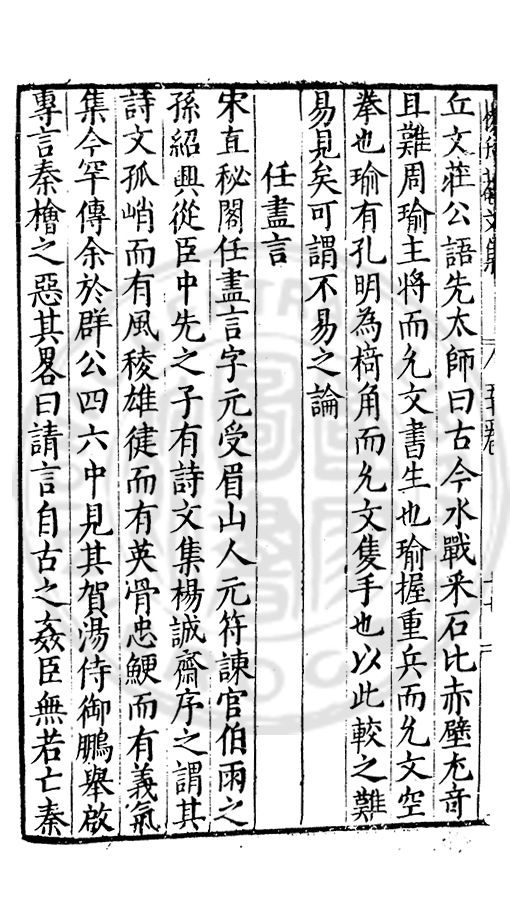 丘文莊公語先太師曰古今水戰采石比赤壁尤奇
且難周瑜主將而允文書生也瑜握重兵而允文空
拳也瑜有孔明為犄角而允文隻手也以此較之難
易見矣可謂不易之論
任盡言
宋直秘閣任盡言字元受眉山人元符諫官伯雨之
孫紹興從臣申先之子有詩文集楊誠齋序之謂其
詩文孤峭而有風稜雄健而有英骨忠鯁而有義氣
集今罕傳余於群公四六中見其賀湯侍御鵬舉啟
專言秦檜之惡其畧曰請言自古之姦臣無若亡秦